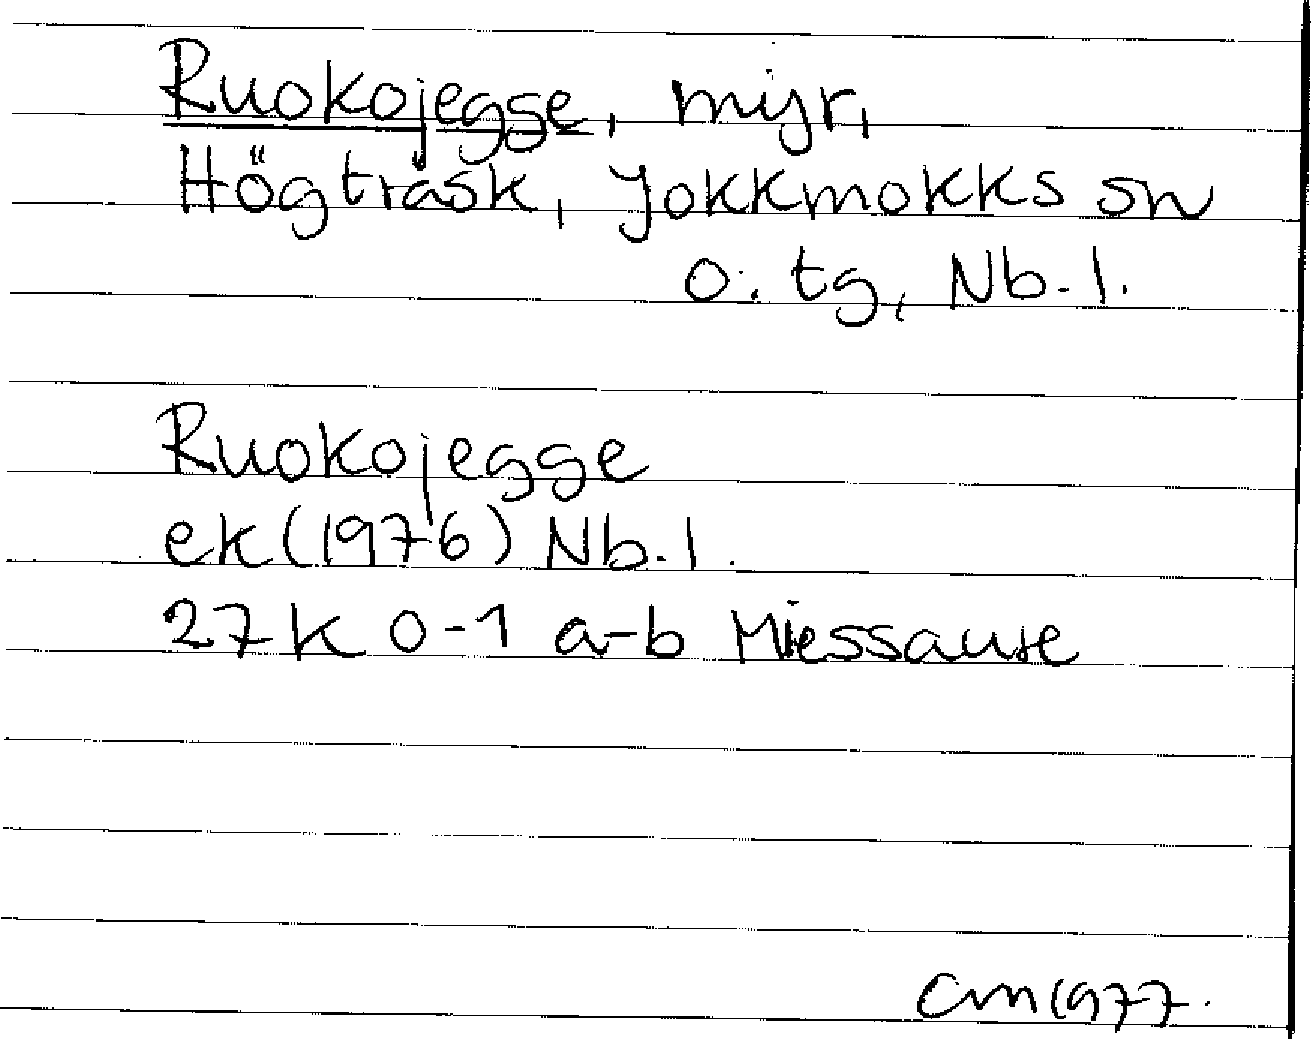 Ruokojegge, myr,
Högträsk, Jokkmokks sn
o. tg, Nb. l.
Ruokojegge
ek (1976) Nb. l.
27 K 0-1 a-b Miessaure
CM 1977.